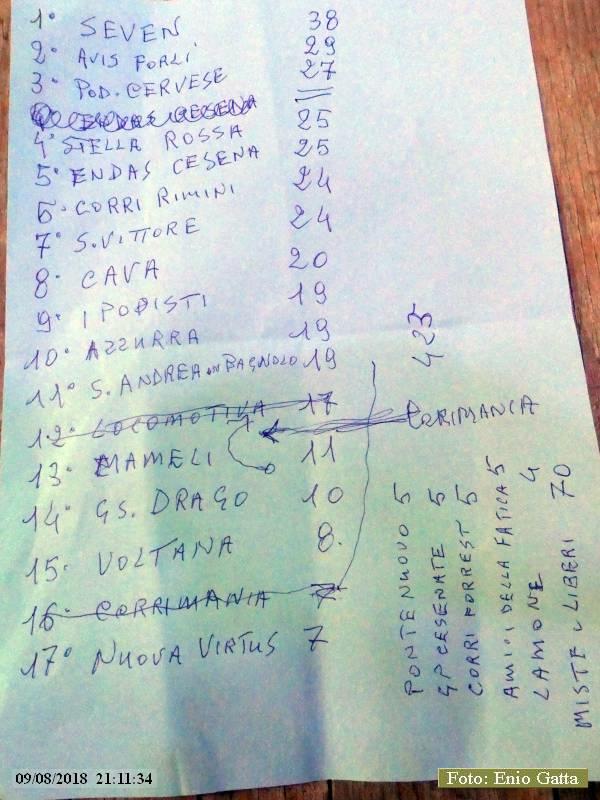 1° SEVEN 38
2° AVIS FORLÍ 29
3° POD. CERVESE 27
4° STELLA ROSSA 25
5° ENDAS CESENA 25
6° CORRI RIMINI 24
7° S. VITTORE 24
8° CAVA 20
9° I PODISTI 19
10° AZZURRA 19
11° S. ANDREA IN BAGNOLO 19
12° LOCOMOTIVA 17
CORRIMANIA
13° MAMELI 11
14° GS. DRAGO 10
15. VOLTANA 8.
16° CORRIMANIA 7
17° NUOVA VIRTUS 7
423
PONTE NUOVO 5
GP CESENATE 5
CORRI FORREST 5
AMICI DELLA FATICA 5
LAMONE 4
MISTE LIBERI 70
09/08/2018 21:11:34
Foto: Enio Gatta